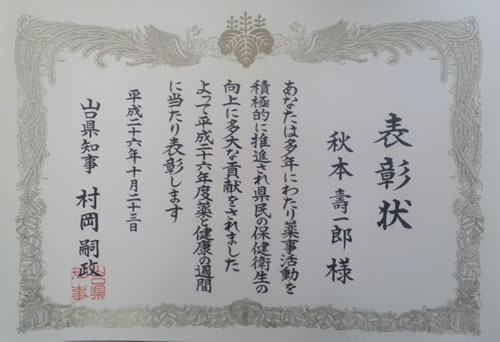 表彰状
秋本壽一郎様
あなたは多年にわたり薬事活動を
積極的に推進され県民の保健衛生の
向上に多大な貢献をされました
よって平成二十六年度薬と健康の週間
に当たり表彰します
平成二十六年十月二十三日
山口県知事 村岡嗣政
山口県
知事